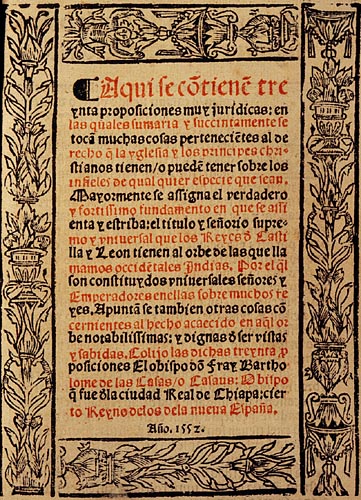 Aqui se cōtienē tre
ynta proposiciones muy juridicas: en
las quales sumaria y succintamente se
tocā muchas cosas perteneciētes al de
recho q̄ la yglesia y los principes chri
stianos tienen / o puedē tener sobre los
infieles de qual quier especie que sean.
Mayormente se assigna el verdadero
y fortissimo fundamento en que se assi
enta y estriba: el titulo y señorio supre
mo y vniuersal que los Reyes d̄ Casti
lla y Leon tienen al orbe de las que lla
mamos occidētales Indias. Por el q̄l
son constituydos vniuersales señores y
Emperadores en ellas sobre muchos re
yes. Apuntā se tambien otras cosas cō
cernientes al hecho acaecido en aq̄l or
be notabilissimas: y dignas d̄ ser vistas
y sabidas. Colijo las dichas treynta p
posiciones El obispo dō Fray Bartho
lome de las Casas / o Casaus: Obispo
q̄ fue d̄la ciudad Real de Chiapa: cier
to Reyno de los de la nueua España.
Año. 1552.